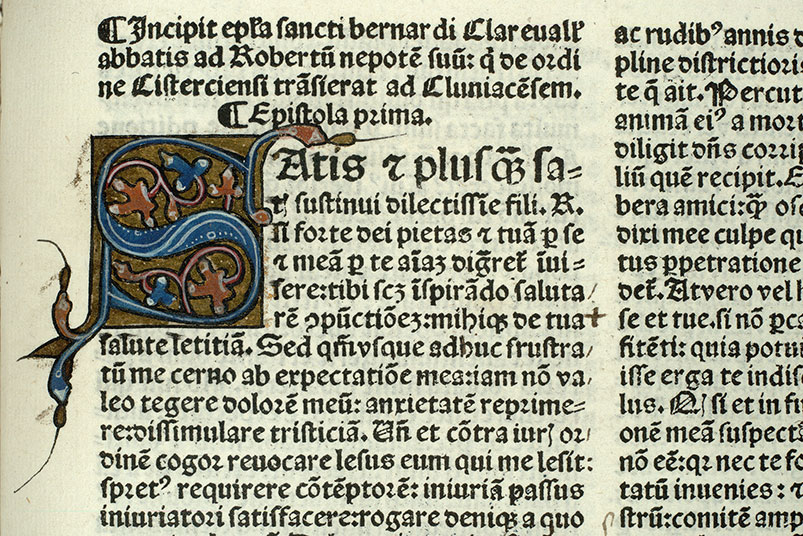 ¶Incipit epl̃a sancti bernardi Clareuall̃
abbatis ad Robertũ nepotẽ suũ: q̃ de ordi
ne Cisterciensi trãsierat ad Cluniacẽsem.
¶Epistola prima.
SAtis ⁊ plusq̃ sa-
t̃ sustinui dilectissĩe fili. R.
si forte dei pietas ⁊ tuã ꝑ se
⁊ meã ꝑ te aĩaʒ digr̃et̃ ĩui-
sere: tibi scʒ ĩspirãdo saluta/
rẽ ꝯpũctiõeʒ: mihiqʒ de tua
salute letitiã. Sed qm̃vsque adhuc frustra/
tũ me cerno ab expectatiõe mea: iam nõ va/
leo tegere dolorẽ meũ: anxietatẽ reprime-
re: dissimulare tristiciã. Uñ et cõtra iurꝭ or/
dinẽ cogor reuocare lesus eum qui me lesit:
spretꝰ requirere cõtẽptorẽ: iniuriã passus
iniuriatori satisfacere: rogare deniqʒ a quo
ac rudibꝰ annis
pline districtioris
te q̃ ait. Percut
animã eiꝰ a mort
diligit dñs corrip
liũ quẽ recipit.
bera amici: q̃ osc
dixi mee culpe qu
tus ꝑpetratione
det̃. Atvero vel h
se et tue. si nõ ꝑc
fitẽti: quia potui
isse erga te indis
lus. Nꝭ si et in fi
onẽ meã suspect
nõ eẽ: qꝛ nec te fo
tatũ inuenies: ⁊
strũ: comitẽ amp